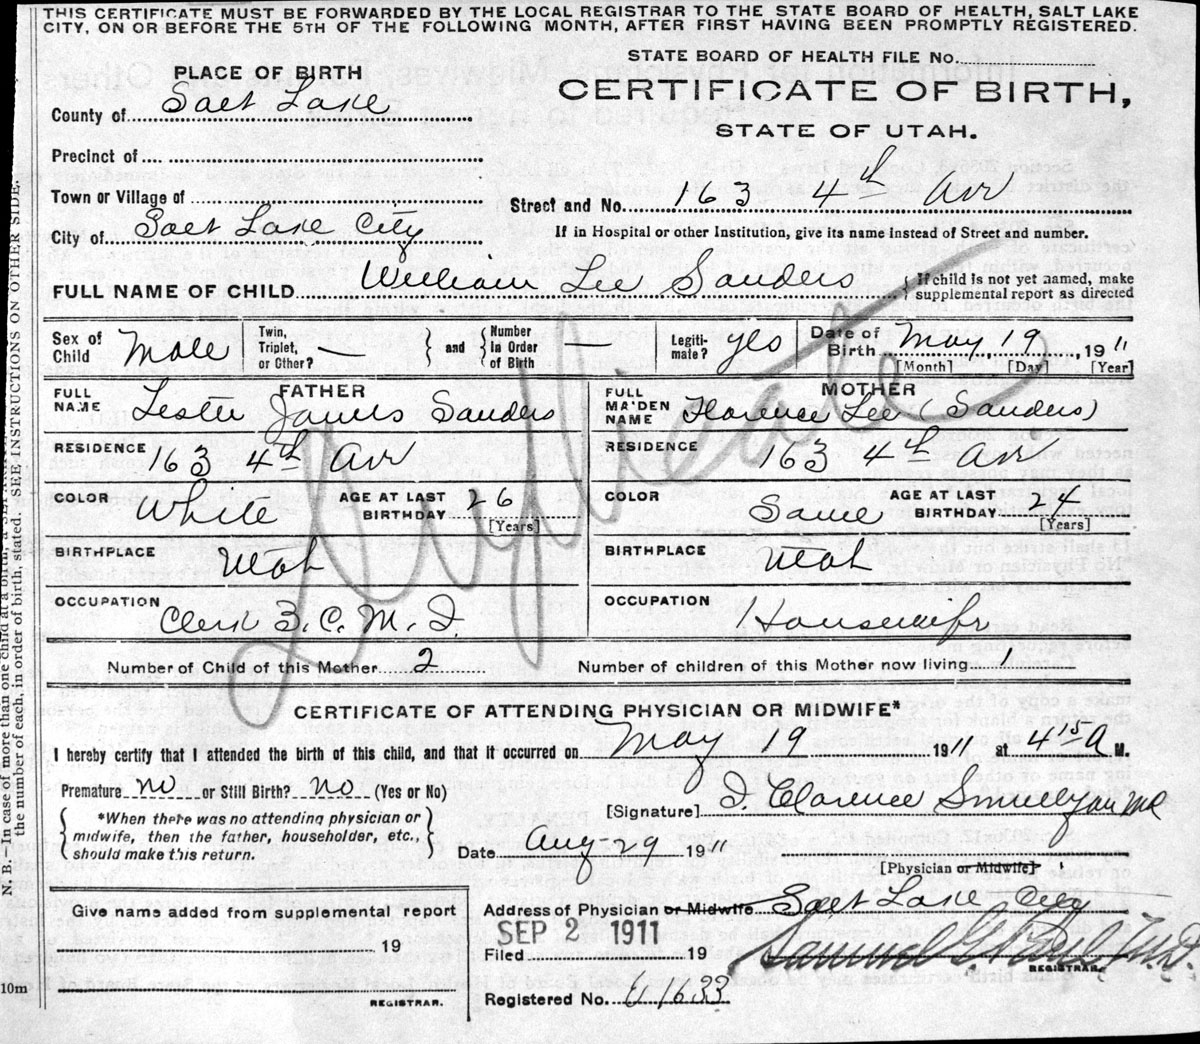 THIS CERTIFICATE MUST BE FORWARDED BY THE LOCAL REGISTRAR TO THE STATE BOARD OF HEALTH, SALT LAKE
CITY, ON OR BEFORE THE 5TH OF THE FOLLOWING MONTH, AFTER FIRST HAVING BEEN PROMPTLY REGISTERED.
STATE BOARD OF HEALTH FILE No.
PLACE OF BIRTH
CERTIFICATE OF BIRTH,
STATE OF UTAH.
County of Salt Lake
Precinct of
Town or Village of
Street and No. 163 4th Av
City of Salt Lake City
If in Hospital or other Institution, give its name instead of Street and number.
FULL NAME OF CHILD William Lee Sanders { If child is not yet named, make
supplemental report as directed
Duplicate
Sex of Child Male
Twin, Triplet, or Other? —
and
Number In Order of Birth —
Legiti-mate? yes
Date of Birth May, 19, 1911
[Month] [Day] [Year]
FATHER
FULL NAME Lester James Sanders
MOTHER
FULL MAIDEN NAME Florence Lee (Sanders)
RESIDENCE 163 4th Av
RESIDENCE 163 4th Av
COLOR White
AGE AT LAST BIRTHDAY 26
[Years]
COLOR Same
AGE AT LAST BIRTHDAY 24
[Years]
BIRTHPLACE Utah
BIRTHPLACE Utah
OCCUPATION Clerk Z. C. M. I.
OCCUPATION Housewife
Number of Child of this Mother 2
Number of children of this Mother now living 1
CERTIFICATE OF ATTENDING PHYSICIAN OR MIDWIFE*
I hereby certify that I attended the birth of this child, and that it occurred on May 19 1911 at 4 15 A M.
Premature no or Still Birth? no (Yes or No)
*When there was no attending physician or
midwife, then the father, householder, etc.,
should make this return.
[Signature] Clarence MD
Date Aug 29 1911
[Physician or Midwife]
Address of Physician or Midwife Salt Lake City
Give name added from supplemental report
19
REGISTRAR.
SEP 2 1911
Filed 19
Samuel G. Paul M.D.
REGISTRAR.
Registered No. 11633
N. B.—In case of more than one child at a birth, a
the number of each, in order of birth, stated. SEE INSTRUCTIONS ON OTHER SIDE.
10m